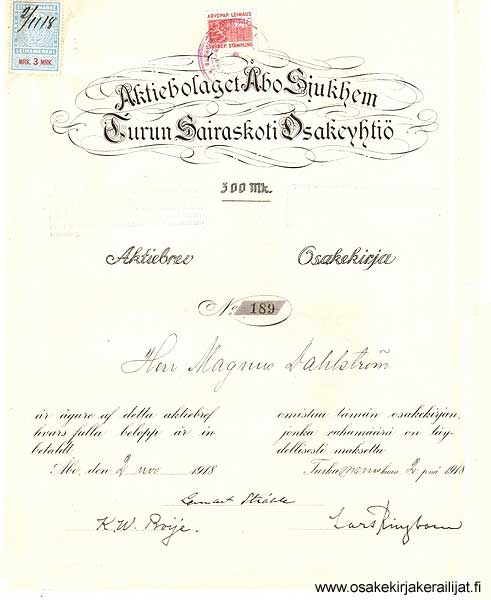 2/11 18
MRK. 3 MRK.
ARVOPAP. LEIMAUS
VÄRDEP. STÄMPLING
Aktiebolaget Åbo Sjukhem
Turun Sairaskoti Osakeyhtiö
300 Mk.
Aktiebrev Osakekirja
No. 189
Herr Magnus Dahlström
är ägare af detta aktiebref
hvars fulla belopp är in
betaldt.
Åbo, den 2 nov 1918
omistaa tämän osakekirjan,
jonka rahamäärä on täy-
dellisesti maksettu
Turku marraskuun 2 pnä 1918
Lennart Stråhle
K. W. Roije. Lars Ringbom
www.osakekirjakerailijat.fi